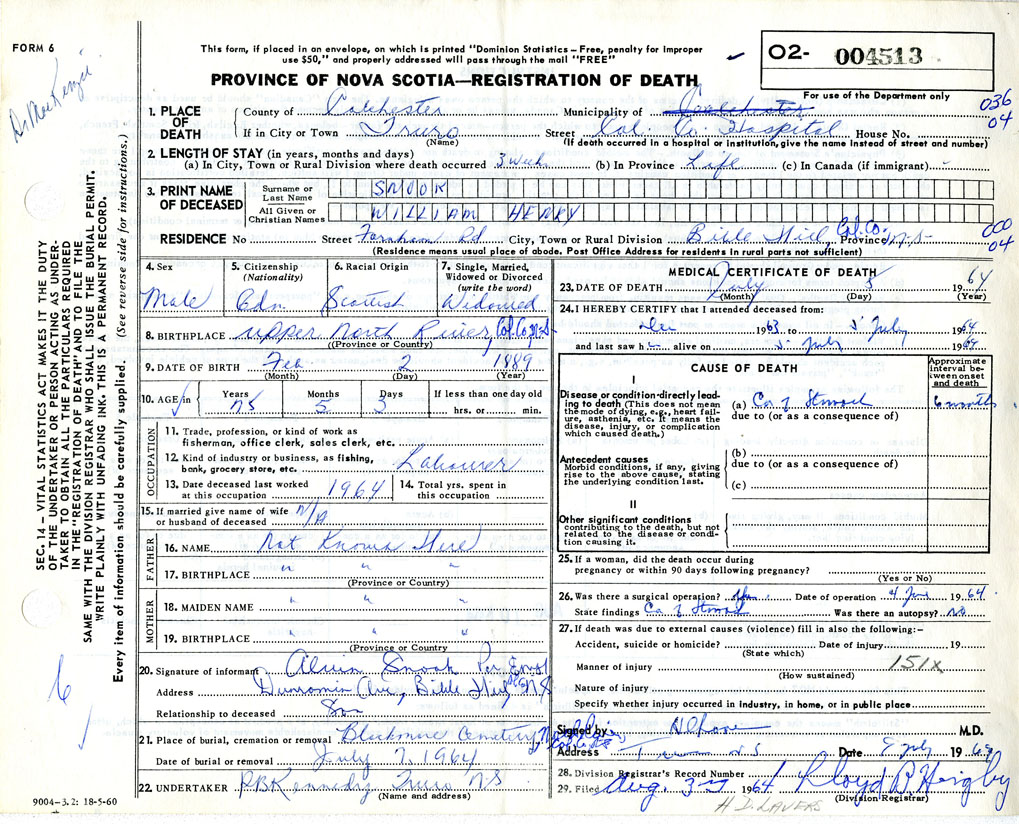 FORM 6
Dr MacKenzie
This form, if placed in an envelope, on which is printed "Dominion Statistics – Free, penalty for improper
use $50," and properly addressed will pass through the mail "FREE"
PROVINCE OF NOVA SCOTIA—REGISTRATION OF DEATH
O2- 004513
For use of the Department only
036
04
1. PLACE OF DEATH
County of Colchester Municipality of Colchester
If in City or Town Truro Street Col. Co. Hospital House No.
(Name) (If death occurred in a hospital or institution, give the name instead of street and number)
2. LENGTH OF STAY (in years, months and days)
(a) In City, Town or Rural Division where death occurred 3 week (b) In Province Life (c) In Canada (if immigrant) -
3. PRINT NAME OF DECEASED
Surname or Last Name SNOOK
All Given or Christian Names WILLIAM HENRY
RESIDENCE No Street Farnham Rd City, Town or Rural Division Bible Hill Col. Co. Province N.S.
000
04
(Residence means usual place of abode. Post Office Address for residents in rural parts not sufficient)
4. Sex Male
5. Citizenship (Nationality) Cdn
6. Racial Origin Scottish
7. Single, Married, Widowed or Divorced (write the word) Widowed
8. BIRTHPLACE Upper North River, Col. Co. N.S.
(Province or Country)
9. DATE OF BIRTH Feb 2 1889
(Month) (Day) (Year)
10. AGE in Years 75 Months 5 Days 3 If less than one day old
hrs. or min.
OCCUPATION
11. Trade, profession, or kind of work as
fisherman, office clerk, sales clerk, etc.
12. Kind of industry or business, as fishing,
bank, grocery store, etc. Labourer
13. Date deceased last worked
at this occupation 1964
14. Total yrs. spent in
this occupation
15. If married give name of wife
or husband of deceased N/A
FATHER
16. NAME Not Known Here
17. BIRTHPLACE " " "
(Province or Country)
MOTHER
18. MAIDEN NAME " " "
19. BIRTHPLACE " " "
(Province or Country)
20. Signature of informant Alvin Snook Per
Address Dunromin Ave, Bible Hill, NS
Relationship to deceased Son
21. Place of burial, cremation or removal Blackmore Cemetery
Date of burial or removal July 7, 1964
22. UNDERTAKER PB Kennedy Truro NS
(Name and address)
9004-3.2: 18-5-60
MEDICAL CERTIFICATE OF DEATH
23. DATE OF DEATH July 5 64
(Month) (Day) (Year)
24. I HEREBY CERTIFY that I attended deceased from:
Dec 1963 to 5 July 1964
and last saw h alive on 5 July 1964
CAUSE OF DEATH
Approximate interval between onset and death
I
Disease or condition directly leading to death (This does not mean the mode of dying, e.g., heart failure, asthenia, etc. It means the disease, injury, or complication which caused death.)
(a) Ca of Stomach 6 months
due to (or as a consequence of)
Antecedent causes
Morbid conditions, if any, giving rise to the above cause, stating the underlying condition last.
(b)
due to (or as a consequence of)
(c)
II
Other significant conditions
contributing to the death, but not related to the disease or condition causing it.
25. If a woman, did the death occur during
pregnancy or within 90 days following pregnancy?
(Yes or No)
26. Was there a surgical operation? Yes Date of operation 4 June 1964
State findings Ca of Stomach Was there an autopsy? No
27. If death was due to external causes (violence) fill in also the following:–
Accident, suicide or homicide? Date of injury 19
(State which)
Manner of injury 151X
(How sustained)
Nature of injury
Specify whether injury occurred in industry, in home, or in public place
Signed by M.D.
Address Truro N S Date 8 July 1964
28. Division Registrar's Record Number
29. Filed Aug. 3rd 1964 Lloyd B Heigby
(Division Registrar)
H D. LAVERS
SEC. 14 – VITAL STATISTICS ACT MAKES IT THE DUTY
OF THE UNDERTAKER OR PERSON ACTING AS UNDER-
TAKER TO OBTAIN ALL THE PARTICULARS REQUIRED
IN THE "REGISTRATION OF DEATH" AND TO FILE THE
SAME WITH THE DIVISION REGISTRAR WHO SHALL ISSUE THE BURIAL PERMIT.
WRITE PLAINLY WITH UNFADING INK. THIS IS A PERMANENT RECORD.
Every item of information should be carefully supplied. (See reverse side for instructions.)
6